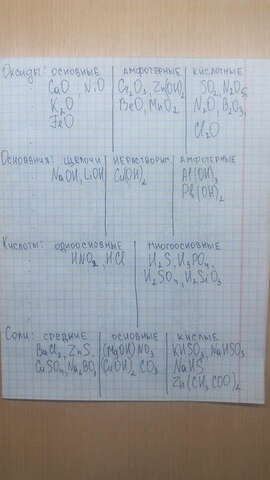 Оксиды: основные амфотерные кислотные
CaO, NiO Cr₂O₃, Zn(OH)₂ SO₂, N₂O₅
K₂O BeO, MnO₂ N₂O, B₂O₃,
FeO Cl₂O
Основания: щелочи нерастворим. амфотерные
NaOH, LiOH Cu(OH)₂ Al(OH)₃
Pb(OH)₂
Кислоты: одноосновные многоосновные
HNO₂, HCl H₂S, H₃PO₄,
H₂SO₄, H₂SiO₃
Соли: средние основные кислые
BaCl₂, ZnS (MgOH)NO₃ KHSO₃, NaHSO₃
CuSO₄, Na₂BO₃ (CuOH)₂CO₃ NaHS
Zn(CH₃COO)₂